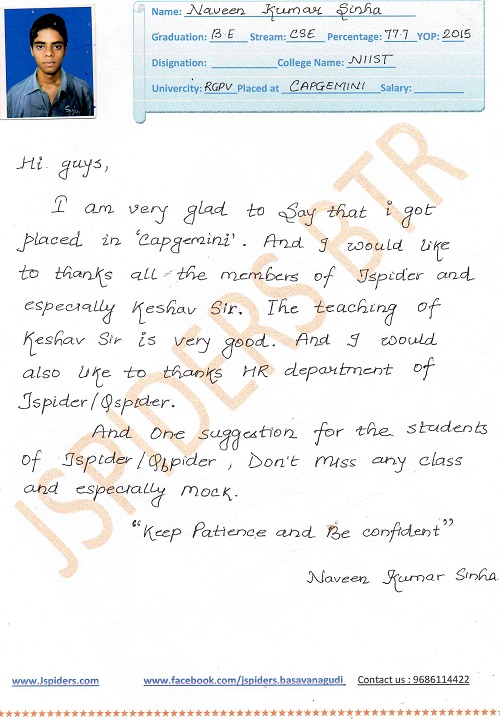 Name: Naveen Kumar Sinha
Graduation: B.E Stream: CSE Percentage: 77.7 YOP: 2015
Disignation: College Name: NIIST
Univercity: RGPV Placed at CAPGEMINI Salary:
Hi guys,
I am very glad to Say that i got
placed in 'Capgemini'. And I would like
to thanks all the members of Jspider and
especially Keshav Sir. The teaching of
Keshav Sir is very good. And I would
also like to thanks HR department of
Jspider/Qspider.
And One suggestion for the students
of Jspider/Qspider, Don't Miss any class
and especially Mock.
"Keep Patience and Be confident"
Naveen Kumar Sinha
JSPIDERS BTR
www.Jspiders.com www.facebook.com/jspiders.basavanagudi Contact us : 9686114422